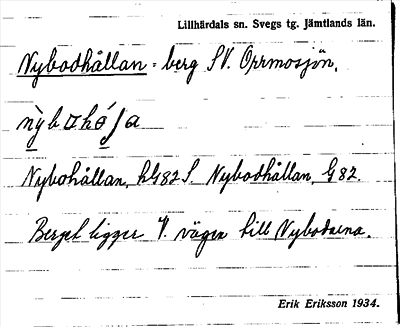 Lillhärdals sn. Svegs tg. Jämtlands län.
Nybodhållan = berg SV. Orrmosjön.
Nybohållan, hG82 S. Nybodhållan, G 82.
Berget ligger V. vägen till Nybodarna.
Erik Eriksson 1934.